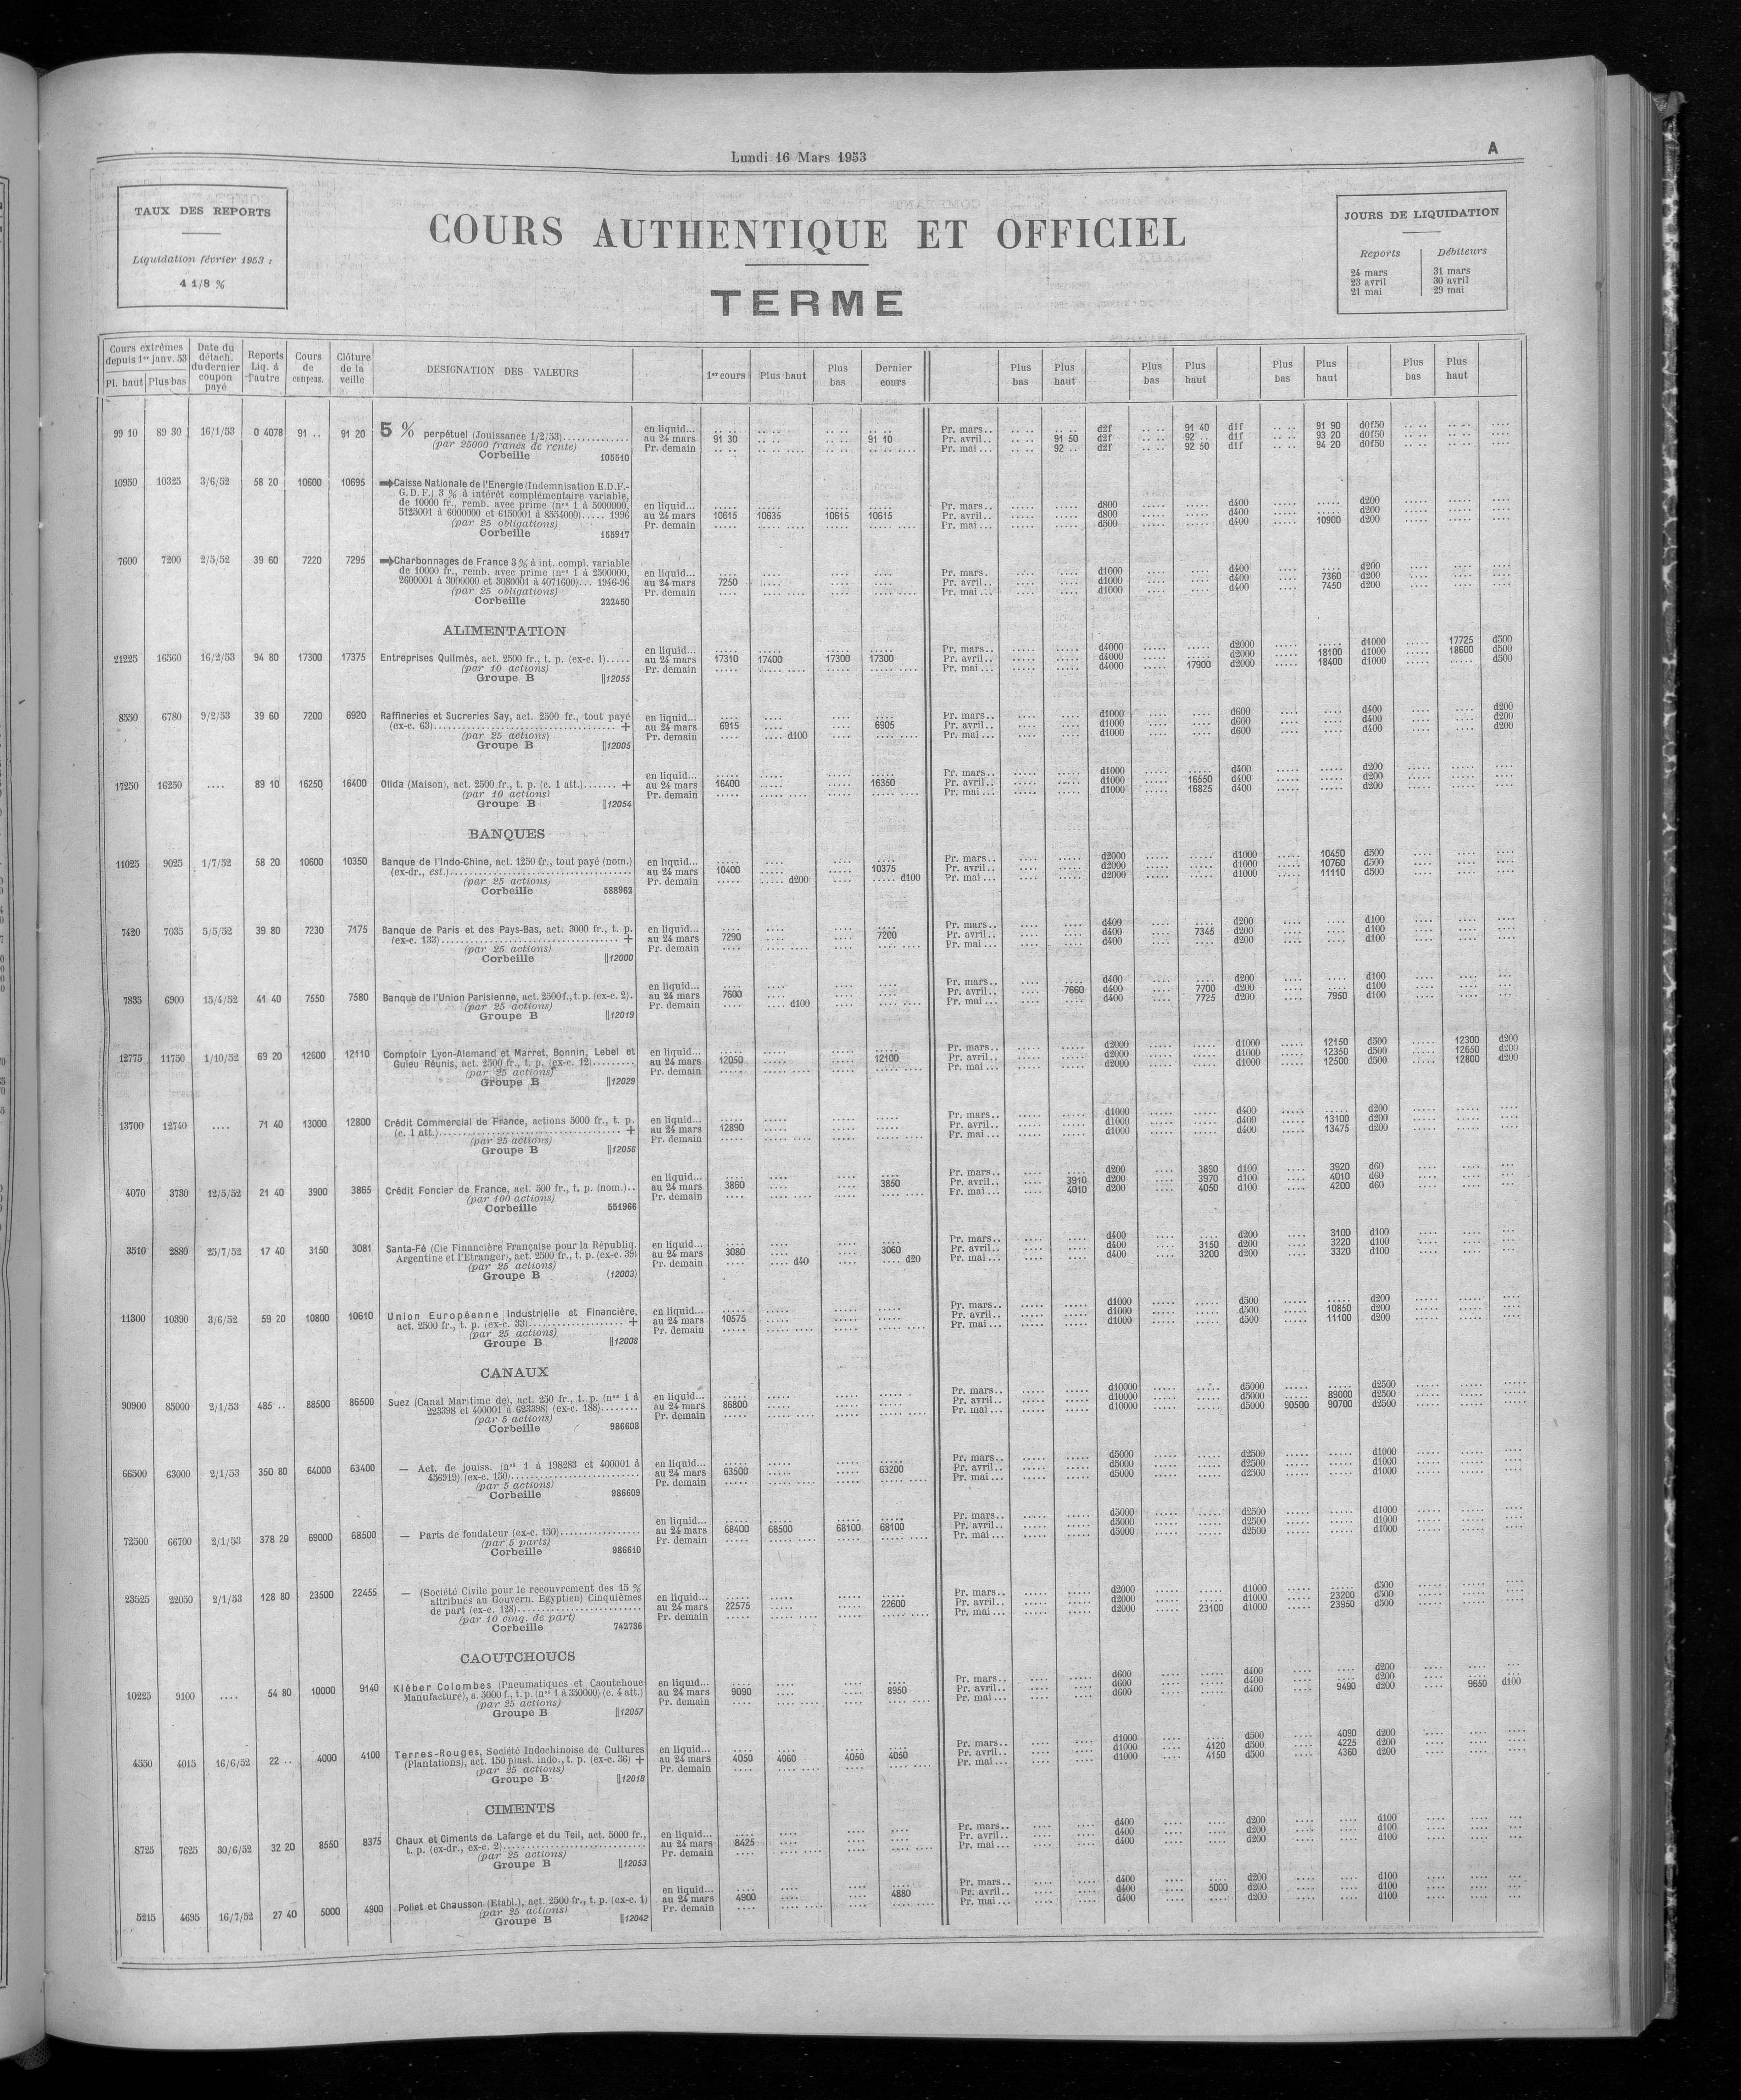 Lundi 16 Mars 1953
A
TAUX DES REPORTS
Liquidation février 1953 :
4 1/8 %
COURS AUTHENTIQUE ET OFFICIEL
TERME
JOURS DE LIQUIDATION
Reports Débiteurs
24 mars 31 mars
23 avril 30 avril
21 mai 29 mai
Cours extrêmes depuis 1er janv. 53 Pl. haut Plus bas
Date du détach. du dernier coupon payé
Reports Liq. à l'autre
Cours de compens.
Clôture de la veille
DESIGNATION DES VALEURS
1er cours Plus haut Plus bas Dernier cours
Plus bas Plus haut Plus bas Plus haut Plus bas Plus haut Plus bas Plus haut
99 10 89 30 16/1/53 0 4078 91 .. 91 20 5 % perpétuel (Jouissance 1/2/53)
(par 25000 francs de rente)
Corbeille 105510
en liquid...
au 24 mars 91 30 91 10
Pr. demain
Pr. mars.. d2f 91 40 d1f 91 90 d0f50
Pr. avril.. 91 50 d2f 92 .. d1f 93 20 d0f50
Pr. mai... 92 .. d2f 92 50 d1f 94 20 d0f50
10950 10325 3/6/52 58 20 10600 10695 Caisse Nationale de l'Energie (Indemnisation E.D.F.-
G.D.F.) 3 % à intérêt complémentaire variable,
de 10000 fr., remb. avec prime (nos 1 à 5000000,
5125001 à 6000000 et 6150001 à 8554000)..... 1996
(par 25 obligations)
Corbeille 155917
en liquid...
au 24 mars 10615 10635 10615 10615
Pr. demain
Pr. mars.. d800 d400 d200
Pr. avril.. d800 d400 d200
Pr. mai... d500 d400 10900 d200
7600 7200 2/5/52 39 60 7220 7295 Charbonnages de France 3 % à int. compl. variable
de 10000 fr., remb. avec prime (nos 1 à 2500000,
2600001 à 3000000 et 3080001 à 4071600)... 1946-96
(par 25 obligations)
Corbeille 222450
en liquid...
au 24 mars 7250
Pr. demain
Pr. mars.. d1000 d400 d200
Pr. avril.. d1000 d400 7360 d200
Pr. mai... d1000 d400 7450 d200
ALIMENTATION
21225 16560 16/2/53 94 80 17300 17375 Entreprises Quilmès, act. 2500 fr., t. p. (ex-c. 1).....
(par 10 actions)
Groupe B ||12055
en liquid...
au 24 mars 17310 17400 17300 17300
Pr. demain
Pr. mars.. d4000 d2000 d1000 17725 d500
Pr. avril.. d4000 d2000 18100 d1000 18600 d500
Pr. mai... d4000 17900 d2000 18400 d1000 d500
8550 6780 9/2/53 39 60 7200 6920 Raffineries et Sucreries Say, act. 2500 fr., tout payé
(ex-c. 63) +
(par 25 actions)
Groupe B ||12005
en liquid...
au 24 mars 6915 6905
Pr. demain d100
Pr. mars.. d1000 d600 d400 d200
Pr. avril.. d1000 d600 d400 d200
Pr. mai... d1000 d600 d400 d200
17250 16250 .... 89 10 16250 16400 Olida (Maison), act. 2500 fr., t. p. (c. 1 att.)....... +
(par 10 actions)
Groupe B ||12054
en liquid...
au 24 mars 16400 16350
Pr. demain
Pr. mars.. d1000 d400 d200
Pr. avril.. d1000 16550 d400 d200
Pr. mai... d1000 16825 d400 d200
BANQUES
11025 9025 1/7/52 58 20 10600 10350 Banque de l'Indo-Chine, act. 1250 fr., tout payé (nom.)
(ex-dr., est.)
(par 25 actions)
Corbeille 588962
en liquid...
au 24 mars 10400 10375
Pr. demain d200 d100
Pr. mars.. d2000 d1000 10450 d500
Pr. avril.. d2000 d1000 10760 d500
Pr. mai... d2000 d1000 11110 d500
7420 7035 5/5/52 39 80 7230 7175 Banque de Paris et des Pays-Bas, act. 3000 fr., t. p.
(ex-c. 133) +
(par 25 actions)
Corbeille ||12000
en liquid...
au 24 mars 7290 7200
Pr. demain
Pr. mars.. d400 d200 d100
Pr. avril.. d400 7345 d200 d100
Pr. mai... d400 d200 d100
7835 6900 15/4/52 41 40 7550 7580 Banque de l'Union Parisienne, act. 2500 f., t. p. (ex-c. 2).
(par 25 actions)
Groupe B ||12019
en liquid...
au 24 mars 7600
Pr. demain d100
Pr. mars.. d400 d200 d100
Pr. avril.. 7660 d400 7700 d200 d100
Pr. mai... d400 7725 d200 7950 d100
12775 11750 1/10/52 69 20 12600 12110 Comptoir Lyon-Alemand et Marret, Bonnin, Lebel et
Guieu Réunis, act. 2500 fr., t. p. (ex-c. 12)
(par 25 actions)
Groupe B ||12029
en liquid...
au 24 mars 12050 12100
Pr. demain
Pr. mars.. d2000 d1000 12150 d500 12300 d200
Pr. avril.. d2000 d1000 12350 d500 12650 d200
Pr. mai... d2000 d1000 12500 d500 12800 d200
13700 12740 .... 71 40 13000 12800 Crédit Commercial de France, actions 5000 fr., t. p.
(c. 1 att.) +
(par 25 actions)
Groupe B ||12056
en liquid...
au 24 mars 12890
Pr. demain
Pr. mars.. d1000 d400 d200
Pr. avril.. d1000 d400 13100 d200
Pr. mai... d1000 d400 13475 d200
4070 3730 12/5/52 21 40 3900 3865 Crédit Foncier de France, act. 500 fr., t. p. (nom.)..
(par 100 actions)
Corbeille 551966
en liquid...
au 24 mars 3860 3850
Pr. demain
Pr. mars.. d200 3890 d100 3920 d60
Pr. avril.. 3910 d200 3970 d100 4010 d60
Pr. mai... 4010 d200 4050 d100 4200 d60
3510 2880 25/7/52 17 40 3150 3081 Santa-Fé (Cie Financière Française pour la Républiq.
Argentine et l'Etranger), act. 2500 fr., t. p. (ex-c. 39)
(par 25 actions)
Groupe B (12003)
en liquid...
au 24 mars 3080 3060
Pr. demain d40 d20
Pr. mars.. d400 d200 3100 d100
Pr. avril.. d400 3150 d200 3220 d100
Pr. mai... d400 3200 d200 3320 d100
11300 10390 3/6/52 59 20 10800 10610 Union Européenne Industrielle et Financière,
act. 2500 fr., t. p. (ex-c. 33) +
(par 25 actions)
Groupe B ||12008
en liquid...
au 24 mars 10575
Pr. demain
Pr. mars.. d1000 d500 d200
Pr. avril.. d1000 d500 10850 d200
Pr. mai... d1000 d500 11100 d200
CANAUX
90900 85000 2/1/53 485 .. 88500 86500 Suez (Canal Maritime de), act. 250 fr., t. p. (nos 1 à
223398 et 400001 à 623398) (ex-c. 188)
(par 5 actions)
Corbeille 986608
en liquid...
au 24 mars 86800
Pr. demain
Pr. mars.. d10000 d5000 d2500
Pr. avril.. d10000 d5000 89000 d2500
Pr. mai... d10000 d5000 90500 90700 d2500
66500 63000 2/1/53 350 80 64000 63400 — Act. de jouiss. (nos 1 à 198283 et 400001 à
456919) (ex-c. 150)
(par 5 actions)
Corbeille 986609
en liquid...
au 24 mars 63500 63200
Pr. demain
Pr. mars.. d5000 d2500 d1000
Pr. avril.. d5000 d2500 d1000
Pr. mai... d5000 d2500 d1000
72500 66700 2/1/53 378 20 69000 68500 — Parts de fondateur (ex-c. 150)
(par 5 parts)
Corbeille 986610
en liquid...
au 24 mars 68400 68500 68100 68100
Pr. demain
Pr. mars.. d5000 d2500 d1000
Pr. avril.. d5000 d2500 d1000
Pr. mai... d5000 d2500 d1000
23525 22050 2/1/53 128 80 23500 22455 — (Société Civile pour le recouvrement des 15 %
attribués au Gouvern. Egyptien) Cinquièmes
de part (ex-c. 128)
(par 10 cinq. de part)
Corbeille 742736
en liquid...
au 24 mars 22575 22600
Pr. demain
Pr. mars.. d2000 d1000 d500
Pr. avril.. d2000 d1000 23200 d500
Pr. mai... d2000 23100 d1000 23950 d500
CAOUTCHOUCS
10225 9100 .... 54 80 10000 9140 Kléber Colombes (Pneumatiques et Caoutchouc
Manufacturé), a. 5000 f., t. p. (nos 1 à 350000) (c. 4 att.)
(par 25 actions)
Groupe B ||12057
en liquid...
au 24 mars 9090 8950
Pr. demain
Pr. mars.. d600 d400 d200
Pr. avril.. d600 d400 d200
Pr. mai... d600 d400 9490 d200 9650 d100
4550 4015 16/6/52 22 .. 4000 4100 Terres-Rouges, Société Indochinoise de Cultures
(Plantations), act. 150 piast. indo., t. p. (ex-c. 36) +
(par 25 actions)
Groupe B ||12018
en liquid...
au 24 mars 4050 4060 4050 4050
Pr. demain
Pr. mars.. d1000 d500 4090 d200
Pr. avril.. d1000 4120 d500 4225 d200
Pr. mai... d1000 4150 d500 4360 d200
CIMENTS
8725 7625 30/6/52 32 20 8550 8375 Chaux et Ciments de Lafarge et du Teil, act. 5000 fr.,
t. p. (ex-dr., ex-c. 2)
(par 25 actions)
Groupe B ||12053
en liquid...
au 24 mars 8425
Pr. demain
Pr. mars.. d400 d200 d100
Pr. avril.. d400 d200 d100
Pr. mai... d400 d200 d100
5215 4695 16/7/52 27 40 5000 4900 Poliet et Chausson (Etabl.), act. 2500 fr., t. p. (ex-c. 1)
(par 25 actions)
Groupe B ||12042
en liquid...
au 24 mars 4900 4880
Pr. demain
Pr. mars.. d400 d200 d100
Pr. avril.. d400 5000 d200 d100
Pr. mai... d400 d200 d100